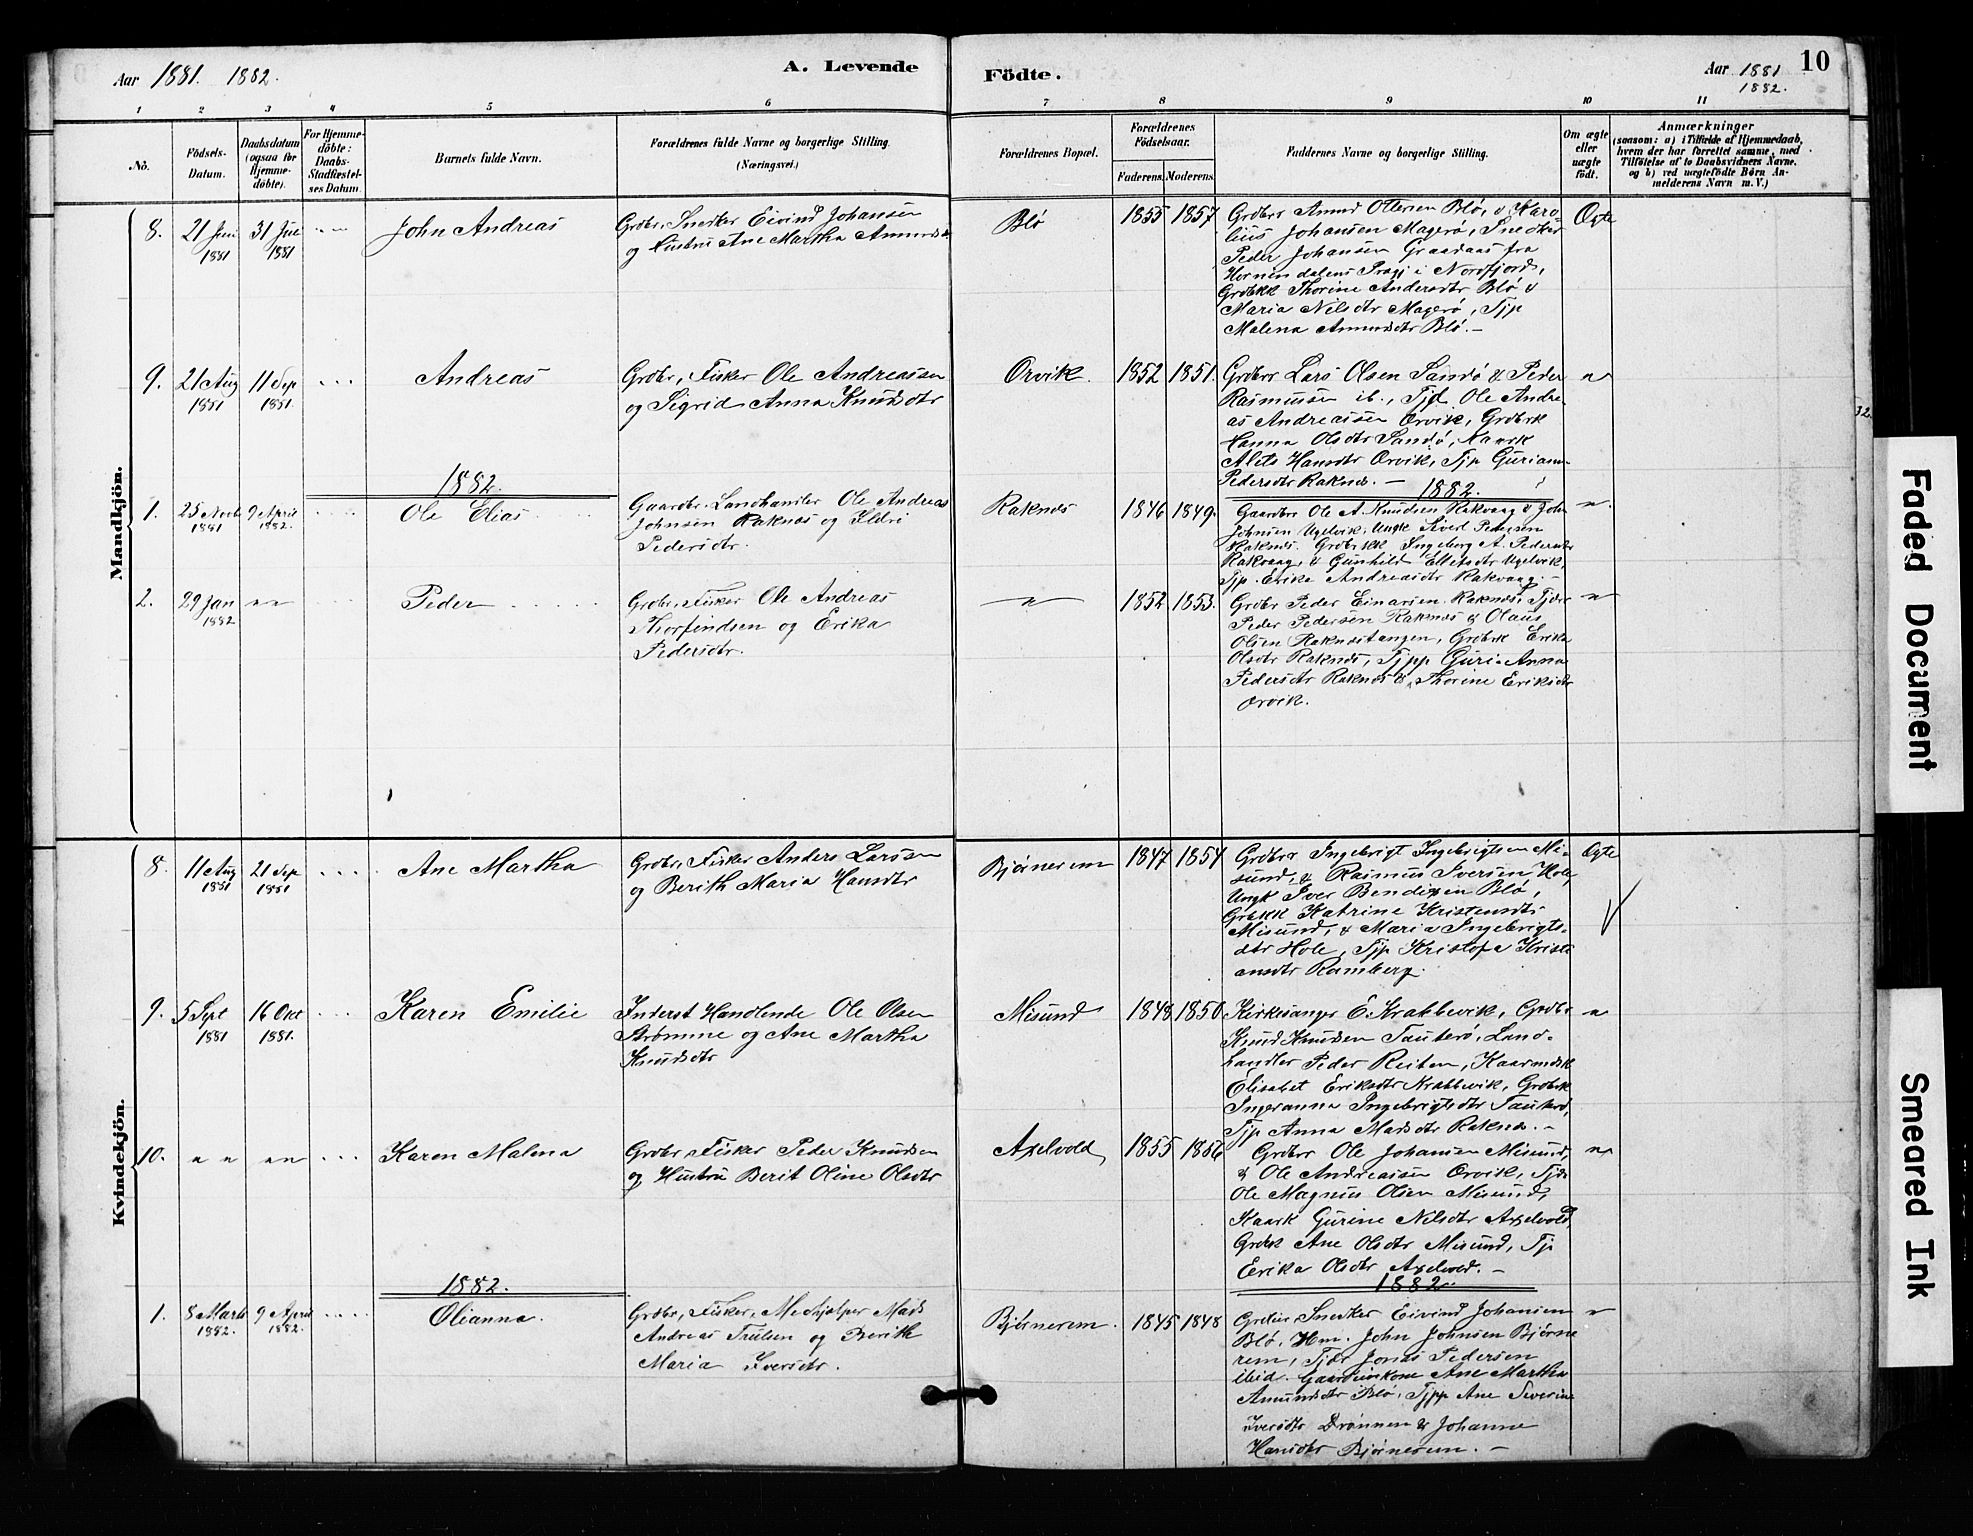 Aar 1881. 1882.
A. Levende
Födte.
Aar 1881
1882.
10
1 2 3 4 5 6 7 8 9 10 11
No.
Födsels-
Datum.
Daabsdatum
(ogsaa for
Hjemme-
döbte).
For Hjemme-
döbte:
Daabs-
Stadfæstel-
ses Datum.
Barnets fulde Navn.
Forældrenes fulde Navne og borgerlige Stilling.
(Næringsvei.)
Forældrenes Bopæl.
Forældrenes
Födselsaar.
Faderens. Moderens.
Faddernes Navne og borgerlige Stilling.
Om ægte
eller
uægte
födt.
Anmærkninger
(saasom: a) i Tilfælde af Hjemmedaab,
hvem der har forrettet samme, med
Tilföielse af to Daabsvidners Navne.
og b) ved uægtefödte Börn An-
melderens Navn m. V.)
Mandkjön.
8. 21 Juni
1881
31 Jul
1881
John Andreas
Grdbr, Snedker Eivind Johansen
og Hustru Ane Martha Amundsdtr
Blø
1855 1857
Grdbrr Amund Ottersen Blø, & Karo-
lius Johansen Magerø, Snedker
Peder Johansen Graadaas fra
Hornindalens Præstgj i Nordfjord,
Grdbrkk Thorine Andersdtr Blø &
Maria Nilsdtr Magerø, Tjp
Malena Amundsdtr Blø. –
Ægte
9. 21 Aug
1881
11 Sep
1881.
Andreas
Grdbr, Fisker Ole Andreassen
og Sigrid Anna Knudsdtr
Orvik.
1852 1851.
Grdbrr Lars Olsen Sandø & Peder
Rasmussen ib., Tjd Ole Andre-
as Andreassen Orvik, Grdbrk
Hanna Olsdtr Sandø, Kaark
Alets Hansdtr Orvik, Tjp Gurianna
Pedersdtr Raknes. –
1882.
1882.
1. 25 Novb
1881
9 April
1882.
Ole Elias
Gaardbr, Landhandler Ole Andreas
Johnsen Raknes og Ildri
Pedersdtr.
Raknes
1846 1849.
Gaardbr Ole A. Knudsen Rakvaag & John
Johnsen Ugelvik, Ungk Sivert Pedersen
Raknes. Grdbrkk Ingeborg A. Pedersdtr
Rakvaag, & Gunhild Ellefsdtr Ugelvik,
Tjp. Erika Andreasdtr Rakvaag. –
2. 29 Jan
1882
Peder
Grdbr, Fisker Ole Andreas
Thorfindsen og Erika
Pedersdtr.
1852 1853.
Grdbr Peder Einarsen Raknes, Tjdr
Peder Pedersen Raknes & Olaus
Olsen Raknestangen, Grdbrk Erika
Olsdtr Raknes, Tjpp Guri Anna
Pedersdtr Raknes & Thorine Eriksdtr
Orvik.
Kvindekjön.
8. 11 Aug
1881
21 Sep
1881
Ane Martha
Grdbr, Fisker Anders Larssen
og Berith Maria Hansdtr
Bjørnerem
1847 1854
Grdbrr Ingebrigt Ingebrigtsen Mi-
sund, & Rasmus Iversen Hole,
Ungk Iver Bendixen Blø,
Grdbrkk Katrine Kristensdtr
Misund, & Maria Ingebrigts-
dtr Hole, Tjp Kristofa Kristi-
ansdtr Ramberg.
Ægte
9. 5 Sept
1881
16 Okt
1881.
Karen Emilie
Inderst Handlende Ole Olsen
Strømme og Ane Martha
Knudsdtr
Misund
1848 1850.
Kirkesanger E. Krabbevik, Grdbr
Knud Knudsen Tauterø, Land-
handler Peder Reiten, Kaarmdsk
Elisabet Eriksdtr Krabbevik, Grdbrk
Ingeranna Ingebrigtsdtr Tauterø,
Tjp Anna Madsdtr Raknes. –
10.
Karen Malena
Grdbr, Fisker Peder Knudsen
og Hustru Berit Oline Olsdtr
Axelvold
1855 1856
Grdbrr Ole Johansen Misund,
& Ole Andreassen Orvik, Tjdr
Ole Magnus Olsen Misund,
Kaark Gurine Nilsdtr Axelvold,
Grdbrk Ane Olsdtr Misund, Tjp
Erika Olsdtr Axelvold. –
1882.
1882.
1. 8 Marts
1882.
9 April
1882.
Olianna.
Grdbr, Fisker, Medhjælper Mads
Andreas Trulsen og Berith
Maria Iversdtr.
Bjørnerem.
1845 1848
Grdbr Snedker Eivind Johansen
Blø, Hm. John Johnsen Bjørne-
rem, Tjdr Jonas Pedersen
ibid. Gaardmkone Ane Martha
Amundsdtr Blø, Tjpp Ane Severine
Iversdtr Drønnen & Johanne
Hansdtr Bjørnerem. –
32.
Faded Document
Smeared Ink